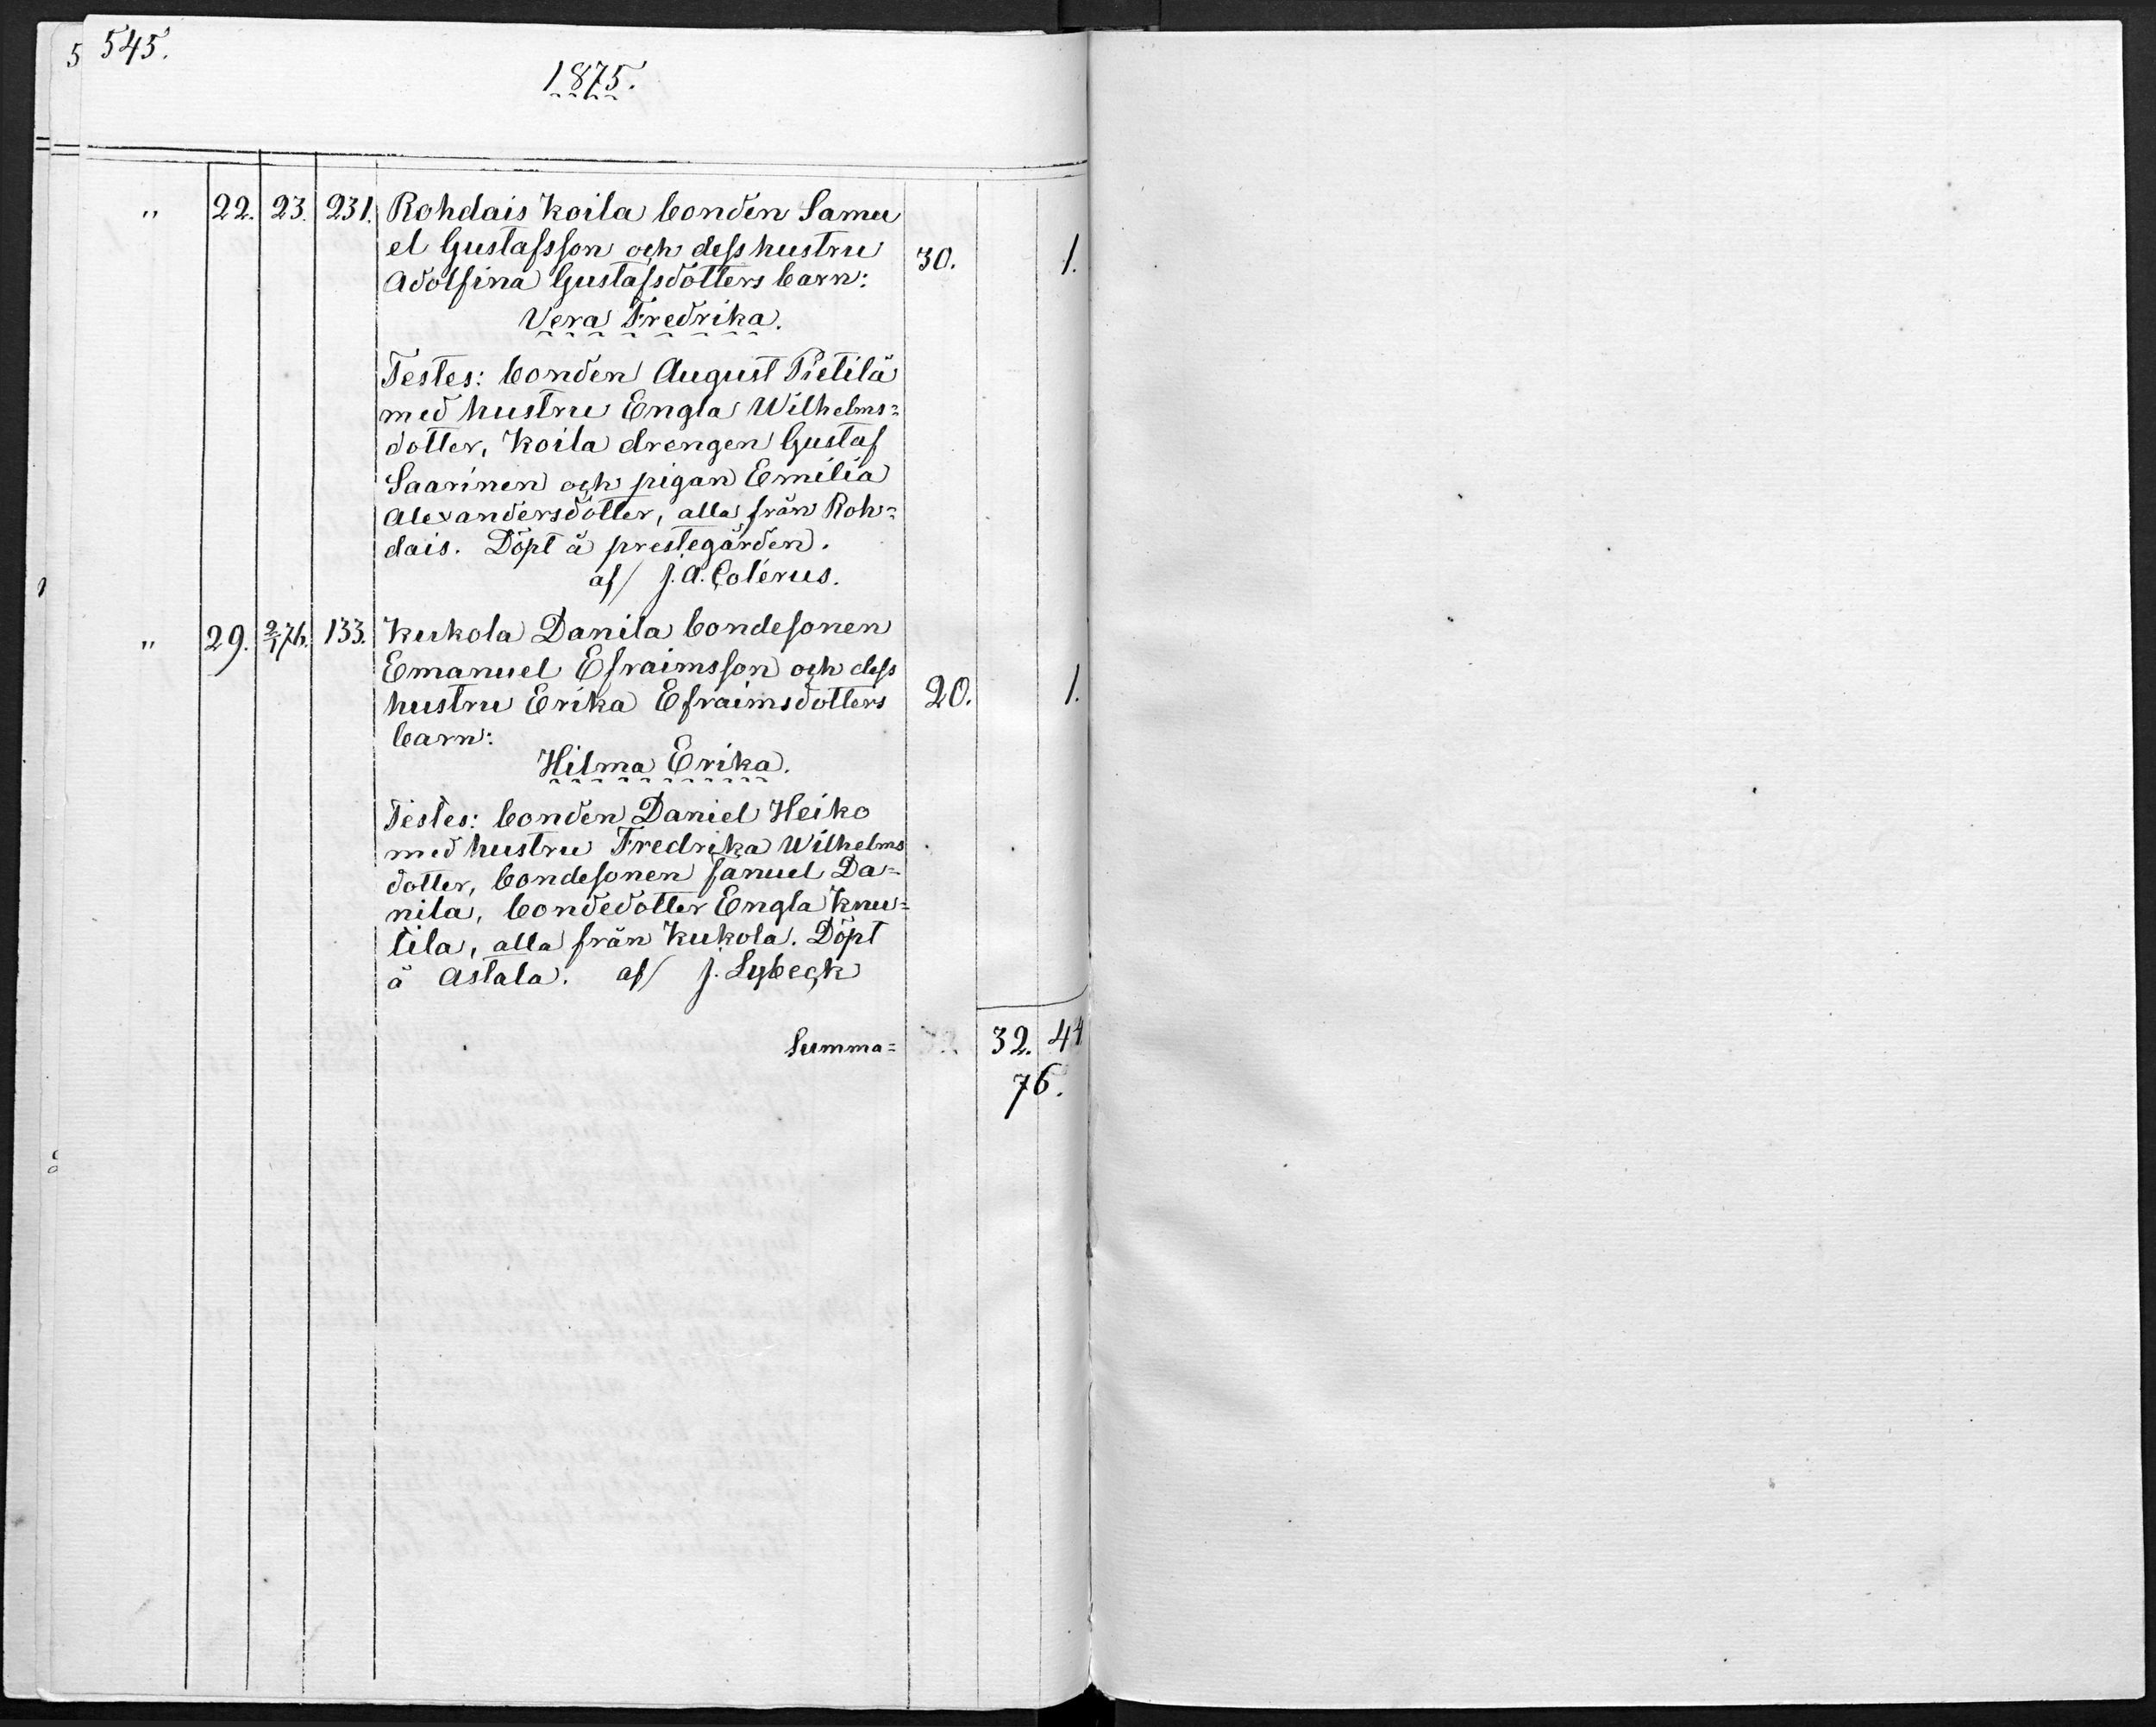 5 545.
1875.
" 22. 23. 231. Rohdais Koila bonden Samu
el Gustafsson och dess hustru 30. 1.
Adolfina Gustafsdotters barn:
Vera Fredrika.
Testes: bonden August Pietilä
med hustru Engla Wilhelms=
dotter, Koila drengen Gustaf
Saarinen och pigan Emilia
Alexandersdotter, alla från Roh=
dais. Döpt å prestegården.
af/ J. A. Colérus.
" 29. 2/1 76. 133. Kukola Danila bondesonen
Emanuel Efraimsson och dess
hustru Erika Efraimsdotters 20. 1.
barn:
Hilma Erika.
Testes: bonden Daniel Heiko
med hustru Fredrika Wilhelms
dotter, bondesonen Samuel Da=
nila, bondedotter Engla Knu=
tila, alla från Kukola. Döpt
å Astala. af/ J. Lybeck
Summa= 32. 44
76.